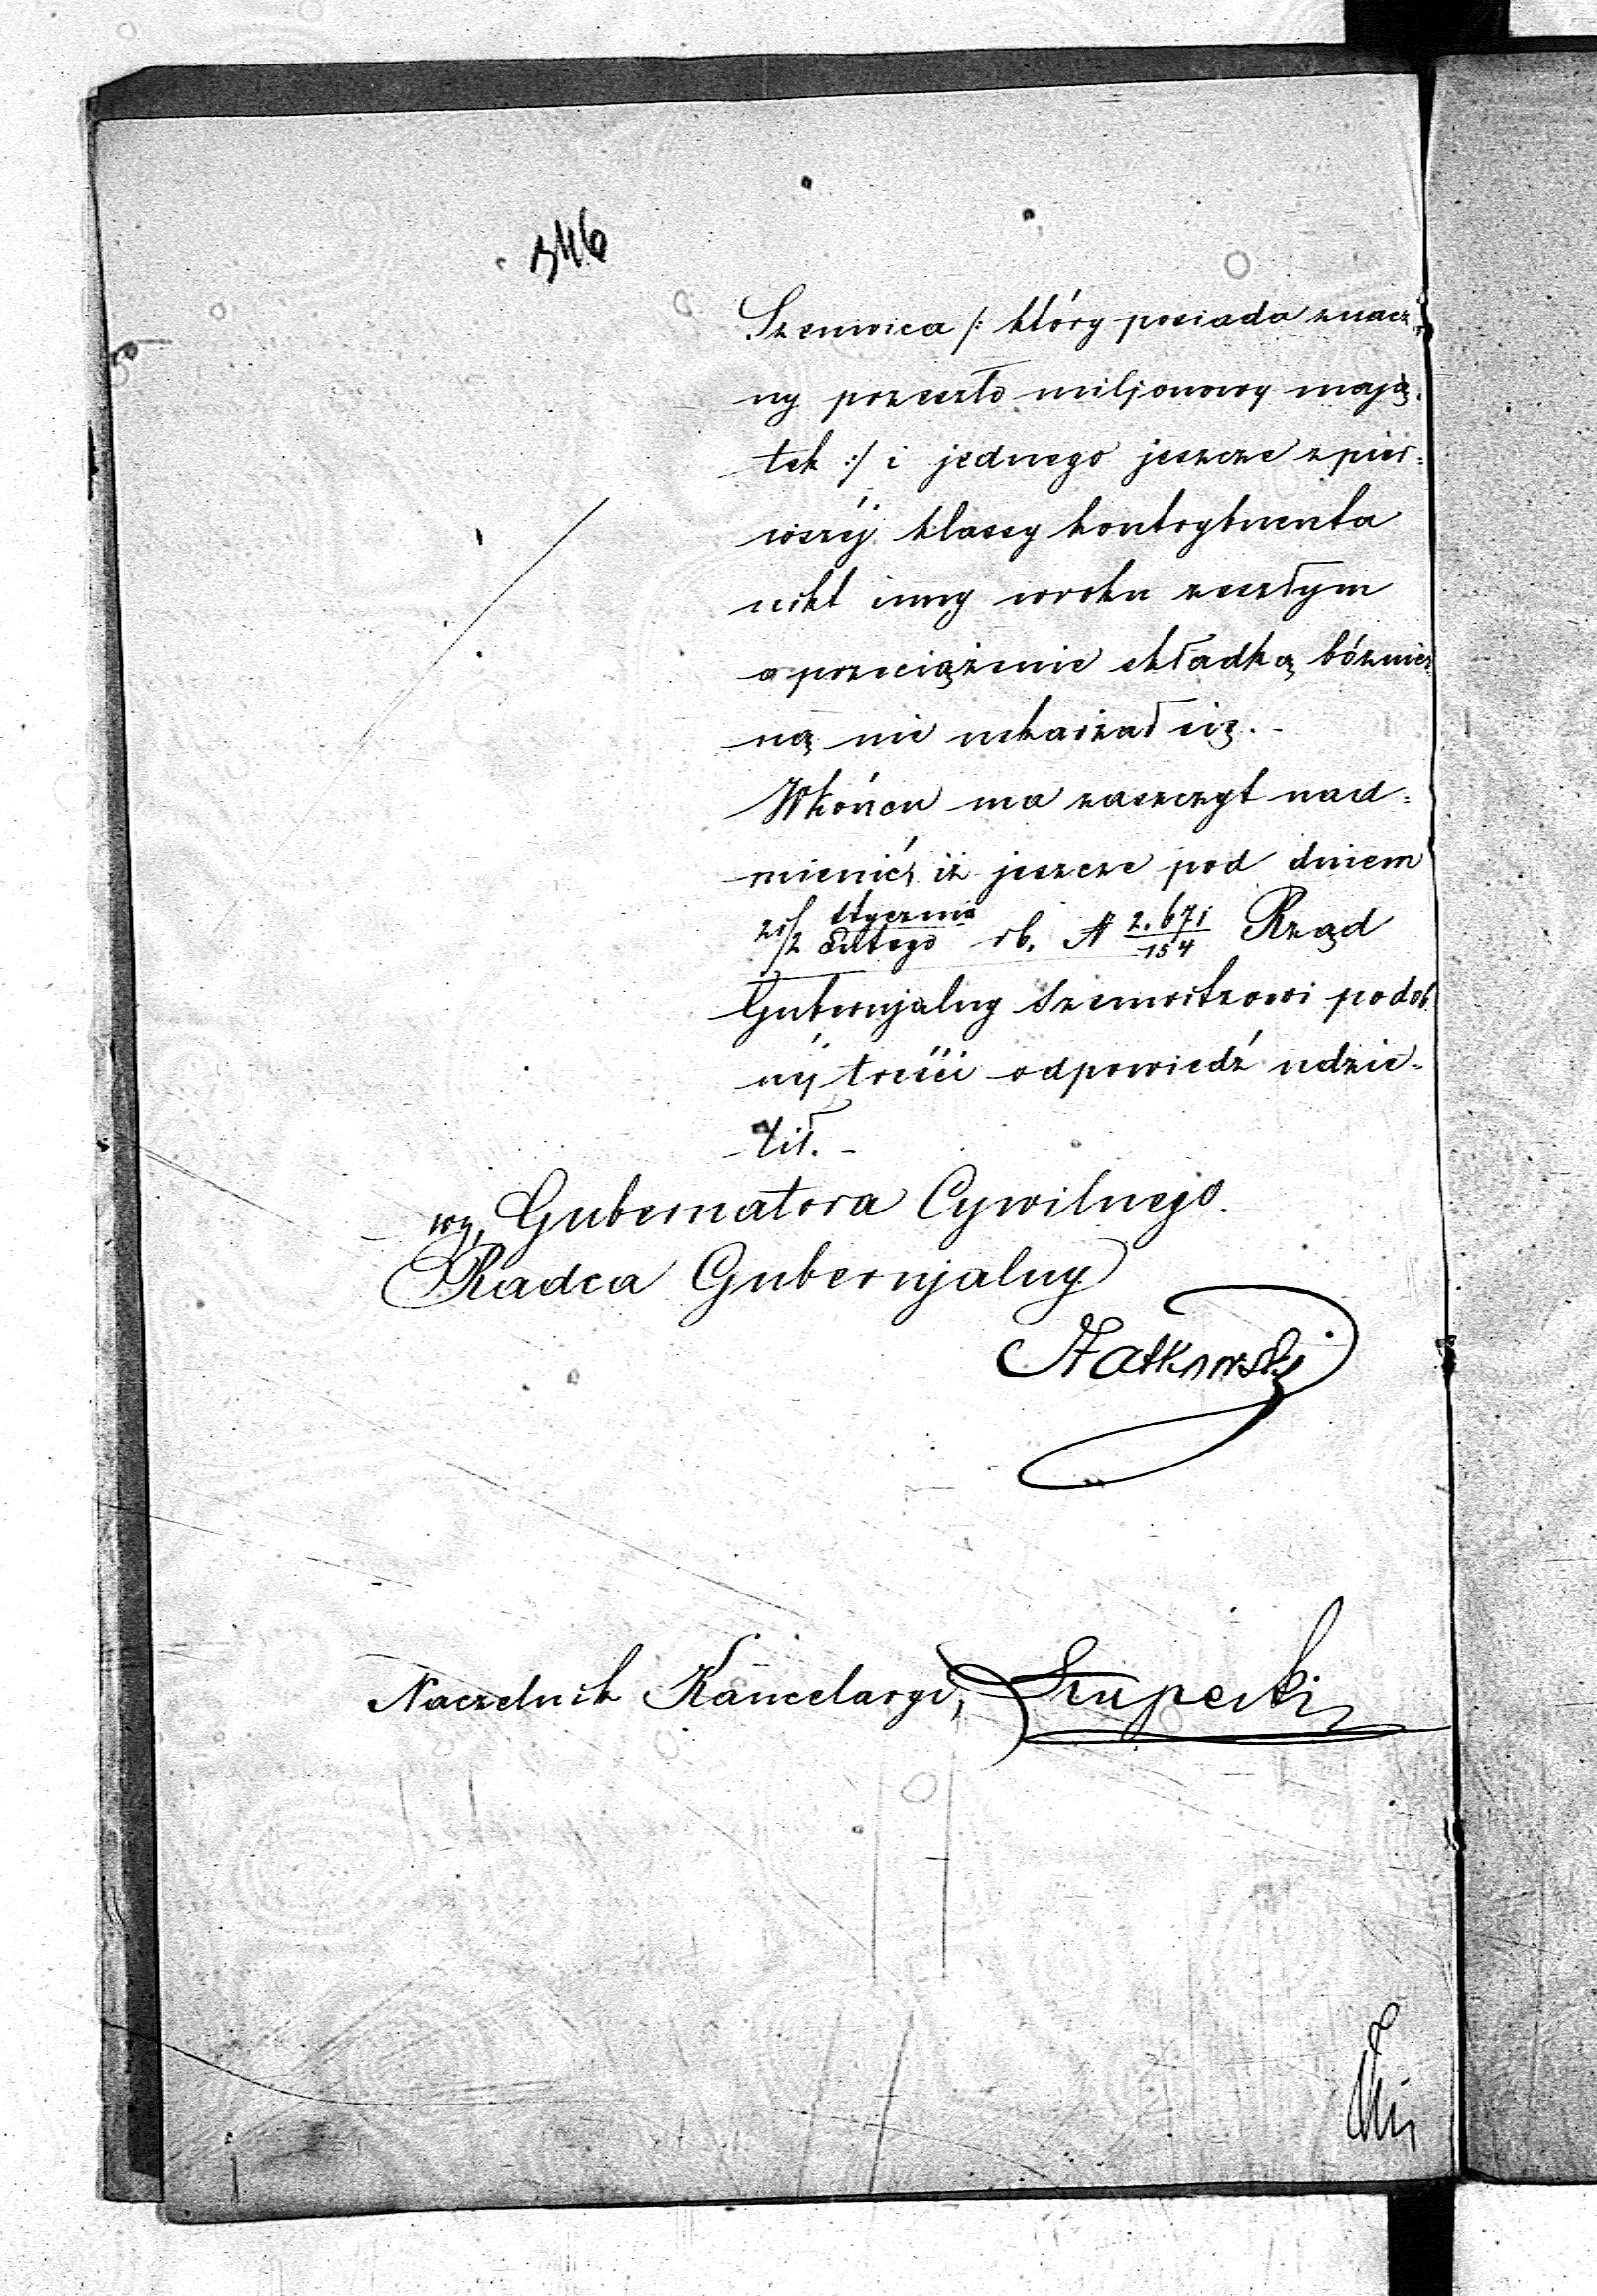 346
Szenwica /: który posiada znacz=
ny przeszło miljonowy mają=
tek :/ i jednego jeszcze zpier=
wszéj klassy kontrybuenta
nikt inny wroku zeszłym
o przeciążenie składką bóżnicz
ną nie uskarżał się. -
Wkońcu ma zaszczyt nad=
mienić, iż jeszcze pod dniem
21/2 Stycznia/Lutego rb. N 2.671/154 Rząd
Gubernjalny Szenwitzowi podob
néj treści odpowiedź udzie=
lił. -
wz. Gubernatora Cywilnego.
Radca Gubernjalny
Natkowski
Naczelnik Kancelaryi, Słupecki